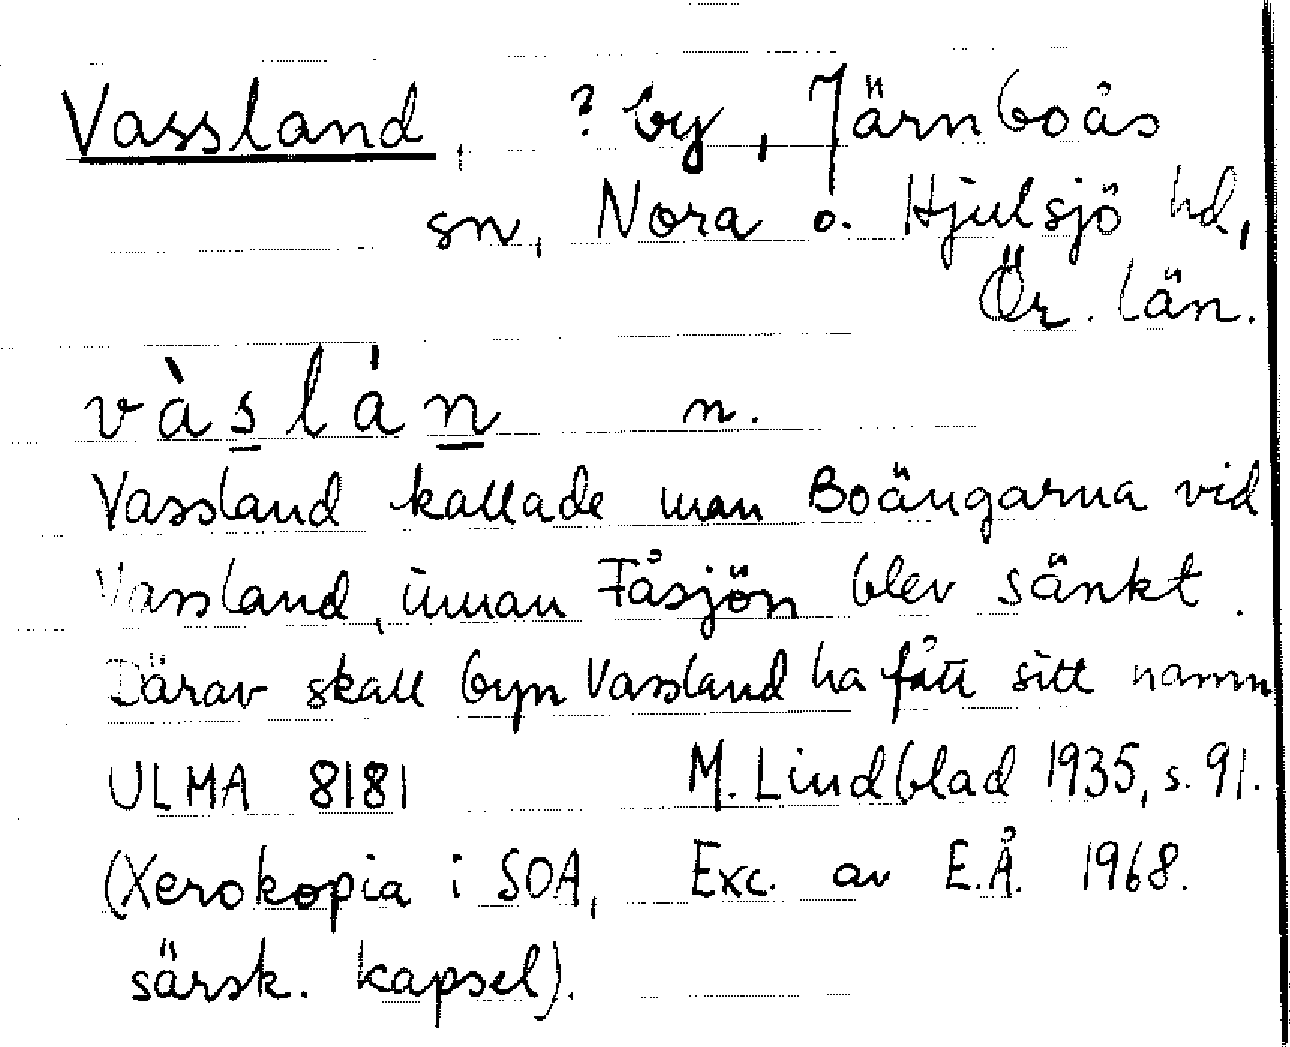 Vassland, ? by, Järnboås
sn, Nora o. Hjulsjö hd,
Ör. län.
vàslán n.
Vassland kallade man Boängarna vid
Vassland, innan Fåsjön blev sänkt.
Därav skall byn Vassland ha fått sitt namn
ULMA 8181 M. Lindblad 1935, s. 91.
(Xerokopia i SOA, Exc. av E.Å. 1968.
särsk. kapsel).